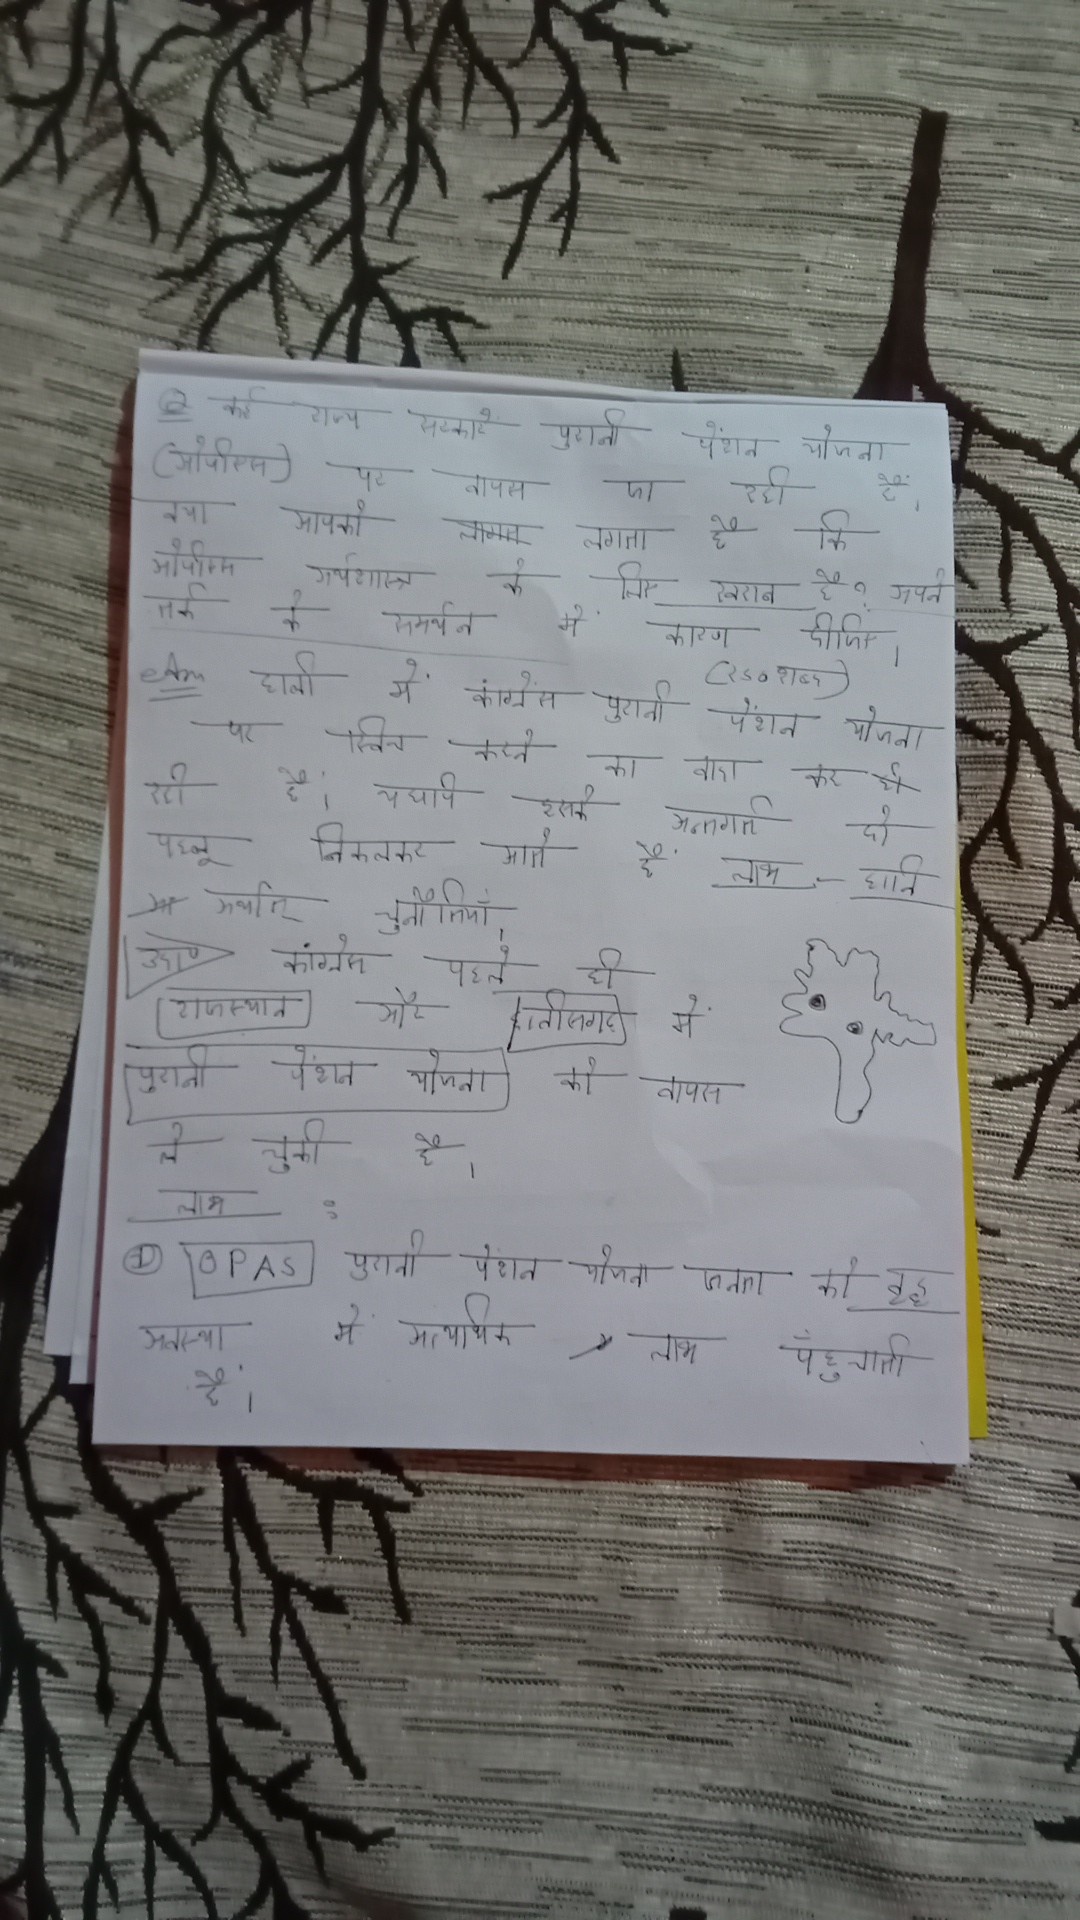 Q कई राज्य सरकारें पुरानी पेंशन योजना
(ओपीएस) पर वापस जा रही हैं।
क्या आपको लगता है कि
ओपीएस अर्थशास्त्र के लिए खराब है? अपने
तर्क के समर्थन में कारण दीजिए।
(250 शब्द)
Ans हाली में कांग्रेस पुरानी पेंशन योजना
पर स्विच करने का वादा कर
रही हैं। यद्यपि इसके अन्तर्गत दो
पहलू निकलकर आते हैं लाभ - हानि
अर्थात् चुनौतियाँ।
उदा० कांग्रेस पहले ही
राजस्थान और छत्तीसगढ़ में
पुरानी पेंशन योजना को वापस
ले चुकी है।
लाभ :
① OPAS पुरानी पेंशन योजना जनता को वृद्ध
अवस्था में अत्यधिक लाभ पँहुचाती
हैं।